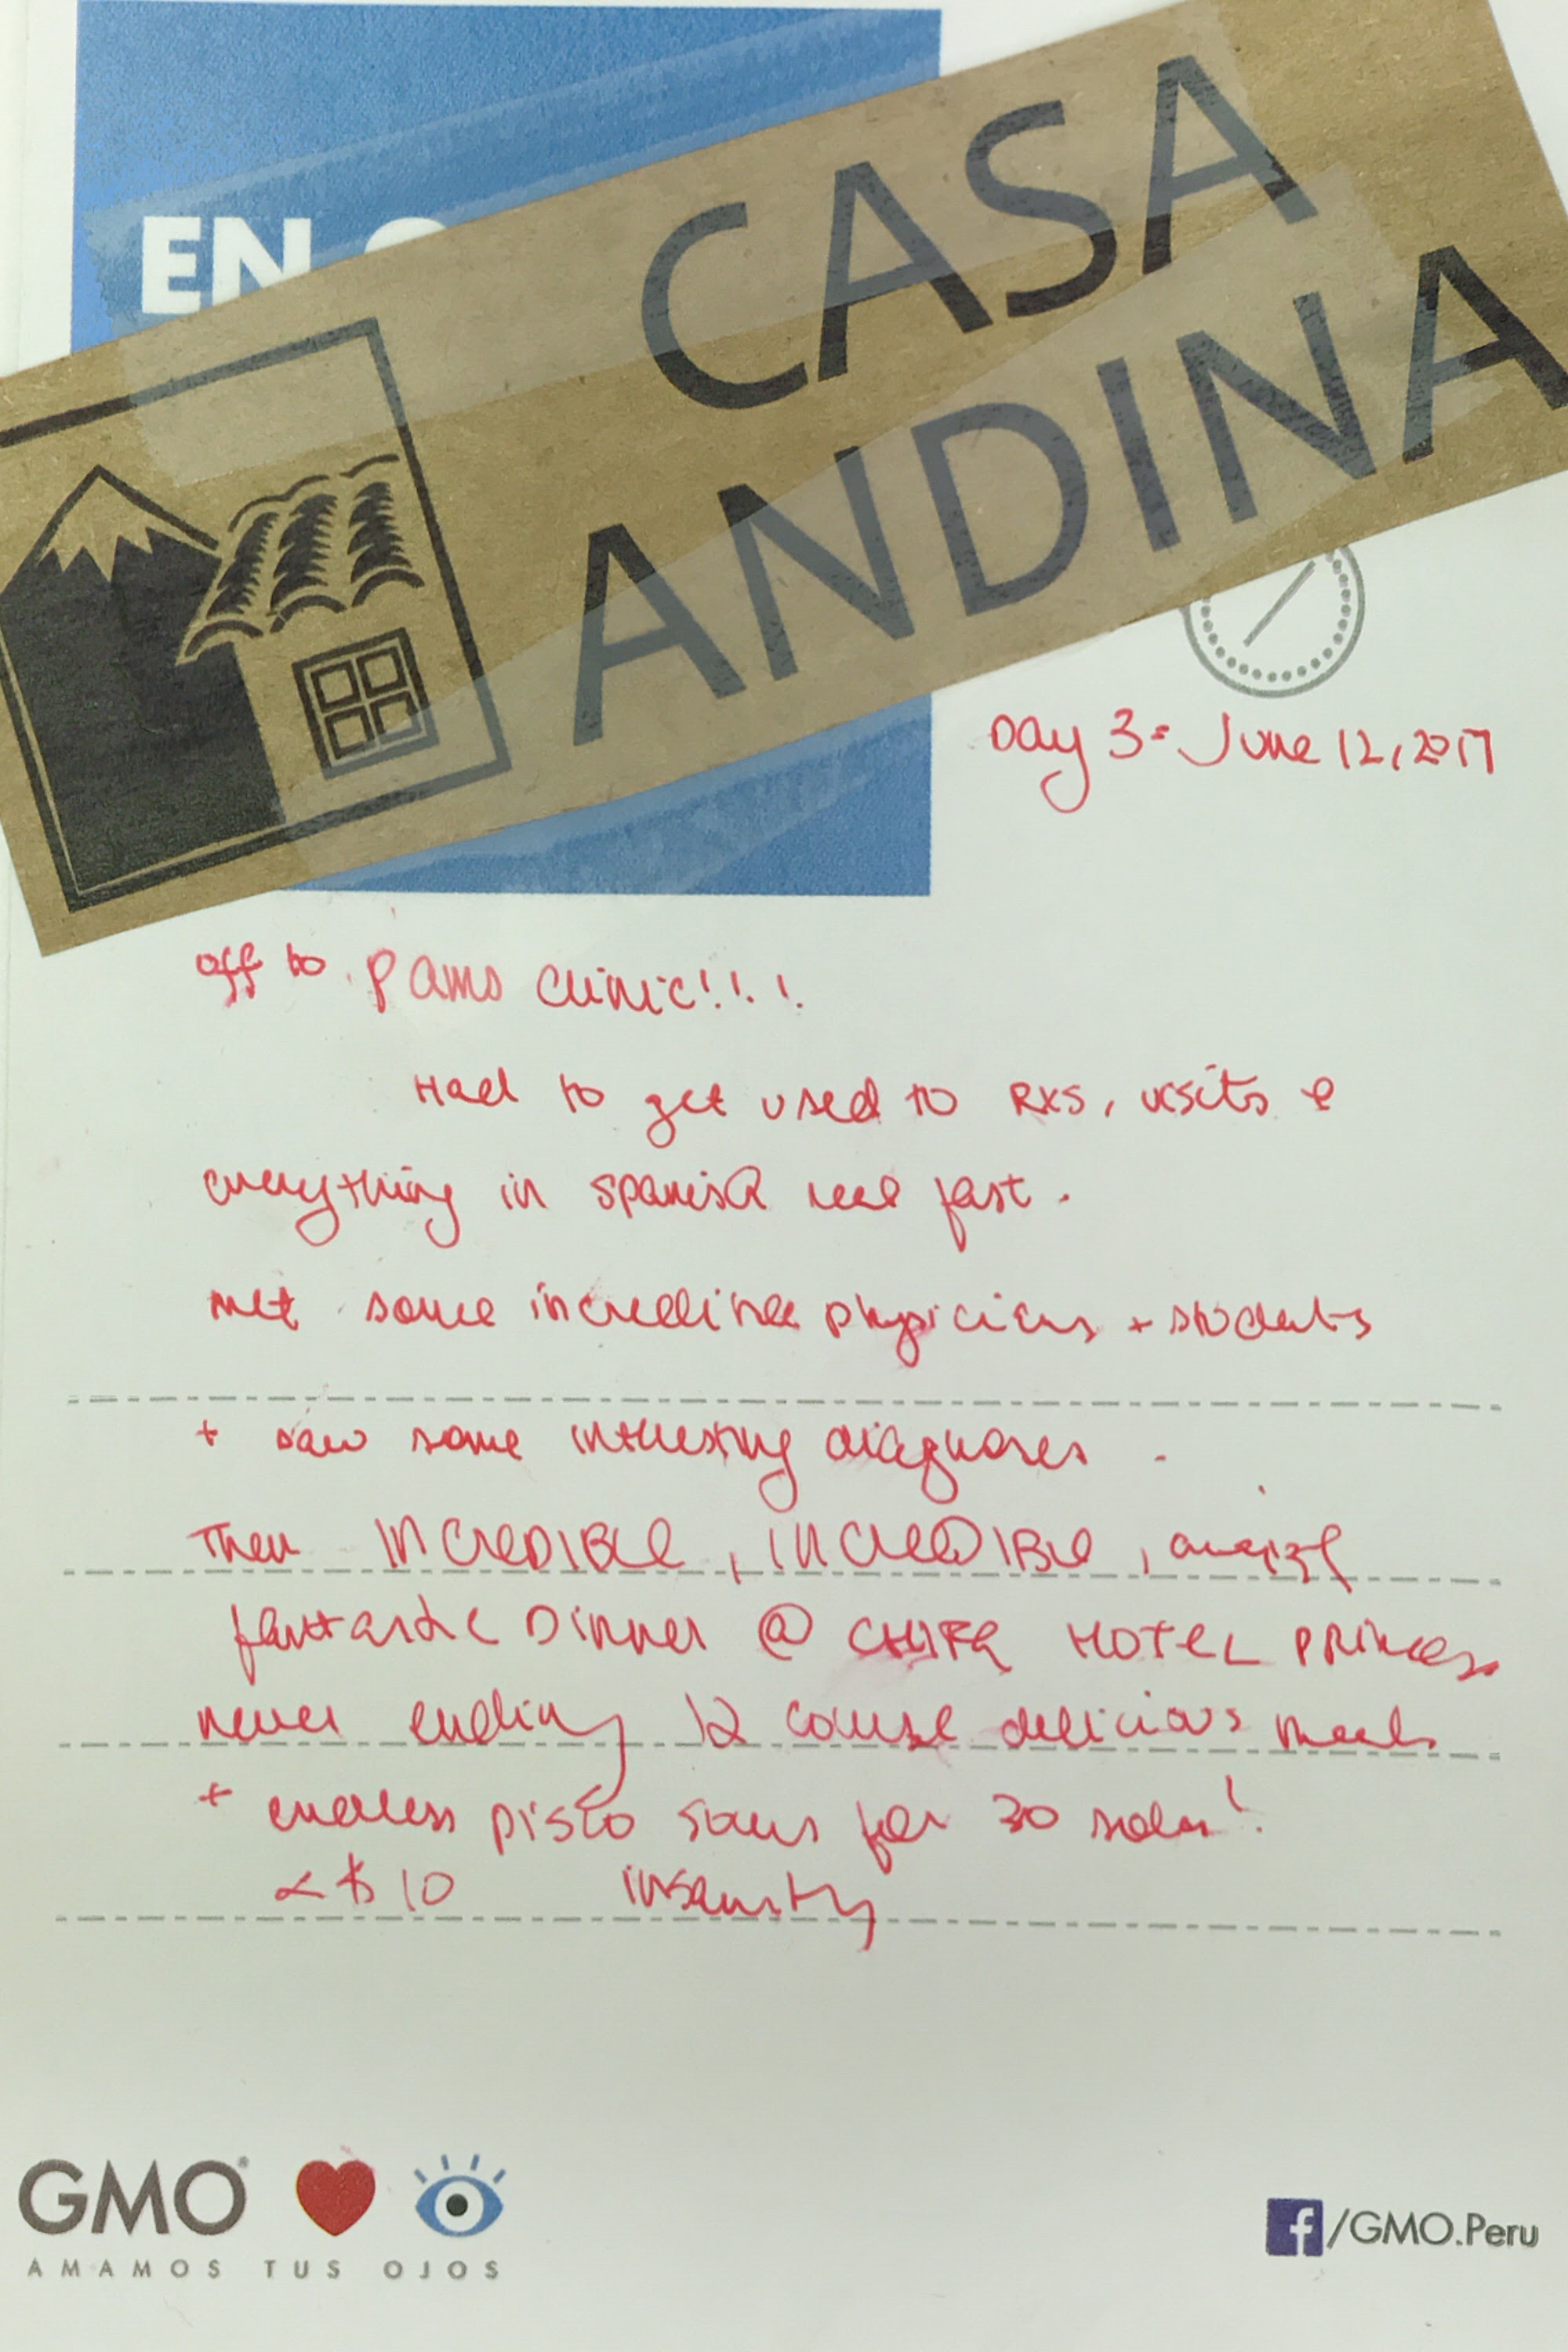 CASA
ANDINA
EN
Day 3 = June 12, 2017
off to Pams clinic!!!!
Had to get used to RXs, visits &
everything in Spanish real fast.
met some incredible physicians + students
+ saw some interesting diagnoses.
Then INCREDIBLE, INCREDIBLE,
fantastic Dinner @ CHIFA HOTEL PRINCESS
never ending 12 course delicious meals
+ endless pisco sours for 30 soles!
< $10 insanity
GMO®
AMAMOS TUS OJOS
f/GMO.Peru